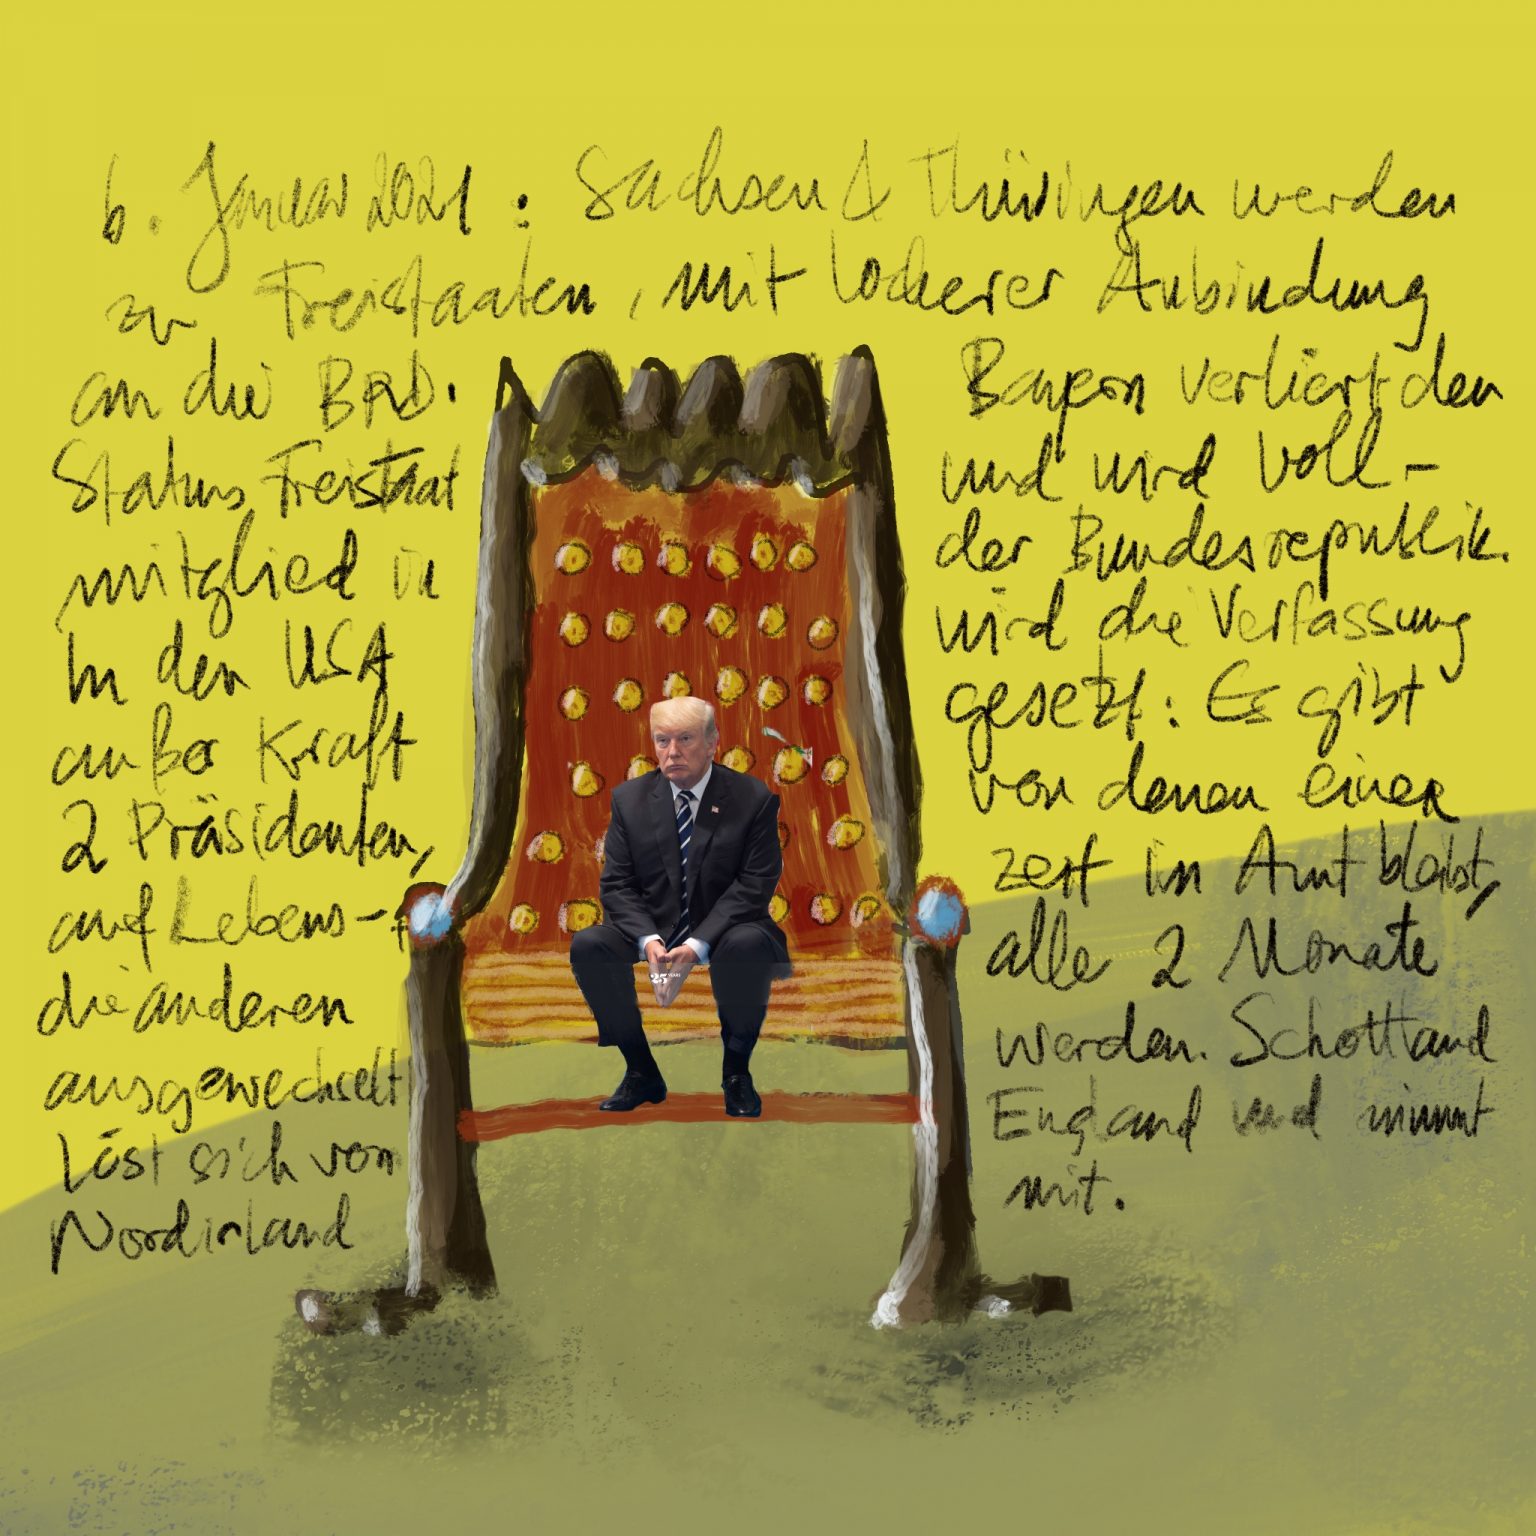 6. Januar 2021 : Sachsen & Thüringen werden
zu Freistaaten, mit lockerer Anbindung
an die BRD. Bayern verliert den
Status Freistaat und wird Voll-
mitglied in der Bundesrepublik.
In den USA wird die Verfassung
außer Kraft gesetzt: Es gibt
2 Präsidenten, von denen einer
auf Lebens- zeit im Amt bleibt,
die anderen alle 2 Monate
ausgewechselt werden. Schottland
Löst sich von England und nimmt
Nordirland mit.
25 YEARS